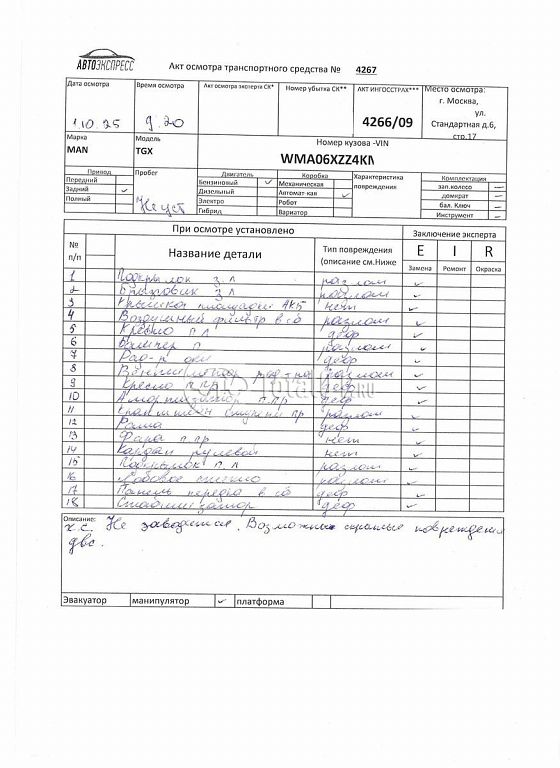 АВТОЭКСПРЕСС
Акт осмотра транспортного средства № 4267
Дата осмотра
1.10.25
Время осмотра
9.20
Акт осмотра эксперта СК*
Номер убытка СК**
АКТ ИНГОССТРАХ***
4266/09
Место осмотра:
г. Москва,
ул.
Стандартная д.6,
стр.17
Марка
MAN
Модель
TGX
Номер кузова -VIN
WMA06XZZ4KN
Привод
Передний
Задний ✓
Полный
Пробег
Не уст
Двигатель
Бензиновый ✓
Дизельный
Электро
Гибрид
Коробка
Механическая
Автомат-кая ✓
Робот
Вариатор
Характеристика
повреждения
Комплектация
зап.колесо –
домкрат –
бал. Ключ
Инструмент –
При осмотре установлено
Заключение эксперта
№
п/п
Название детали
Тип повреждения
(описание см.Ниже
E I R
Замена Ремонт Окраска
1 Подкрылок з л разлом ✓
2 Брызговик з л разлом ✓
3 Крышка АКБ нет ✓
4 Воздушный фильтр в сб разлом ✓
5 Кресло п л деф ✓
6 Бампер п разлом ✓
7 Рад-р деф ✓
8 разлом ✓
9 Кресло п пр деф ✓
10 Амортизатор п.пр деф ✓
11 Кронштейны ступени пр разлом ✓
12 Рама деф ✓
13 Фара п.пр нет ✓
14 Кардан рулевой нет ✓
15 Подкрылок п л разлом ✓
16 Лобовое стекло разлом ✓
17 Панель передка в сб деф ✓
18 Стабилизатор деф ✓
Описание:
х.с. Не заводится. Возможны скрытые повреждения
двс.
Эвакуатор манипулятор ✓ платформа